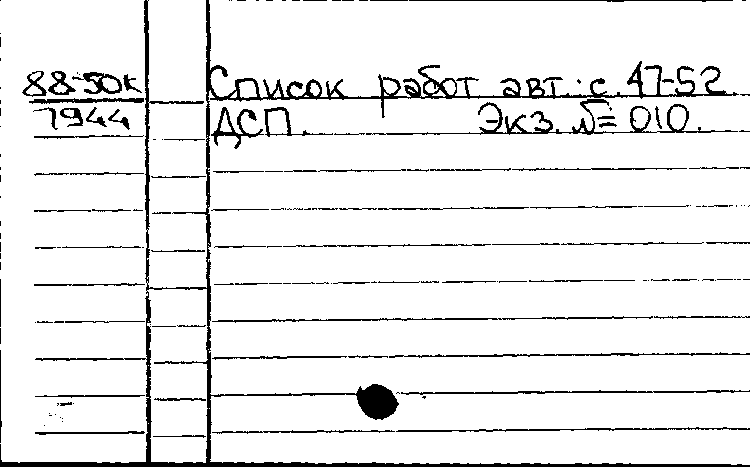 88-50к Список работ авт.: с. 47-52.
7944 ДСП. Экз. № 010.